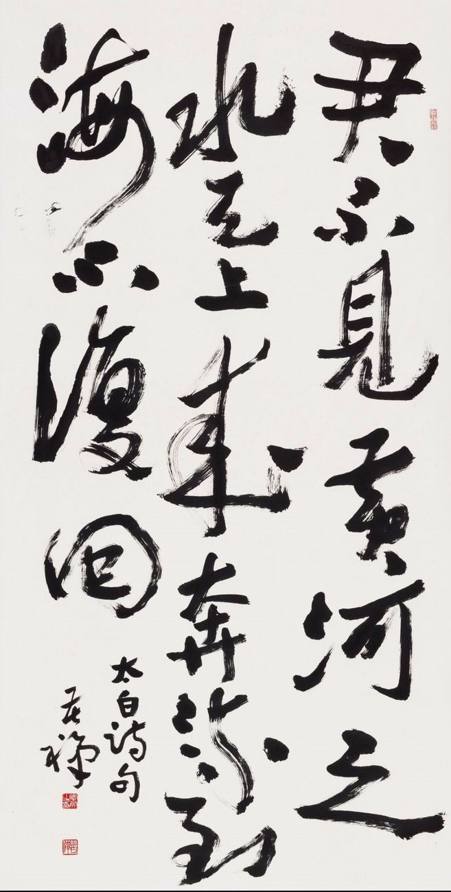 君不見黄河之
水天上来奔流到
海不復回
太白诗句